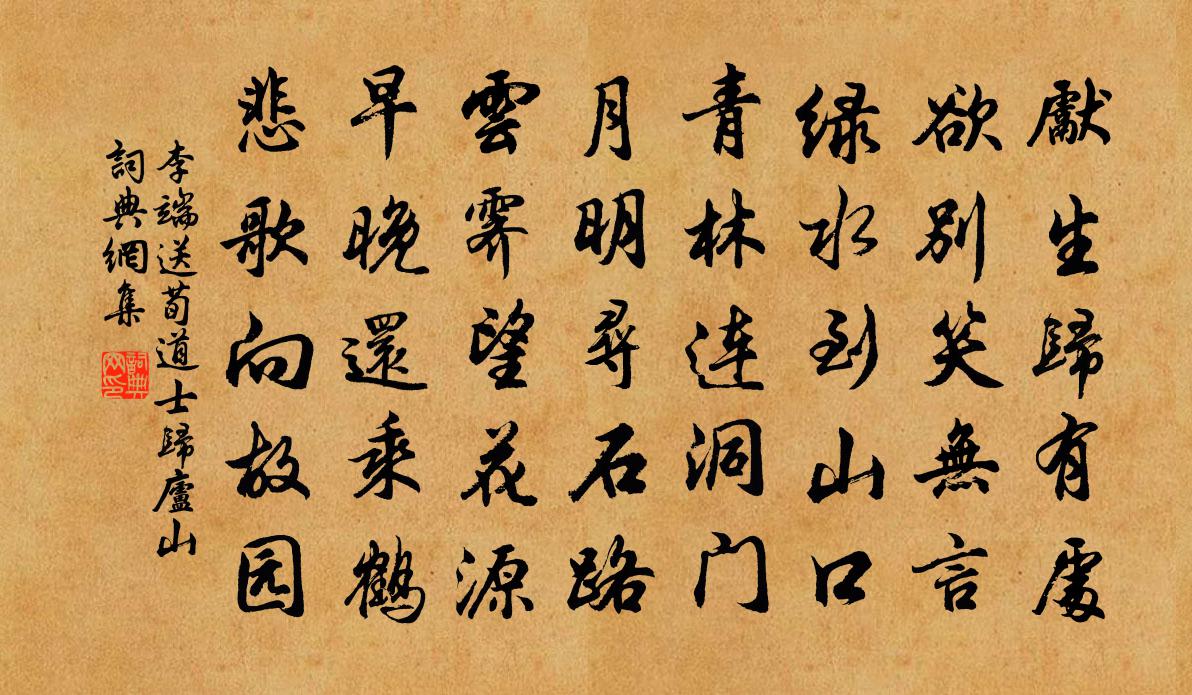 獻生歸有處
欲別笑無言
緑水到山口
青林連洞门
月明尋石路
雲霽望花源
早晚還乘鶴
悲歌向故园
李端送荀道士歸廬山
詞典網集
詞典网印